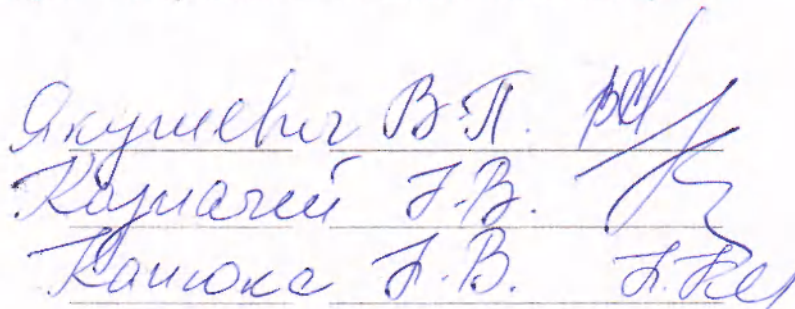 Якушевич В.П.
Казначей Н.В.
Канюка Н.В.